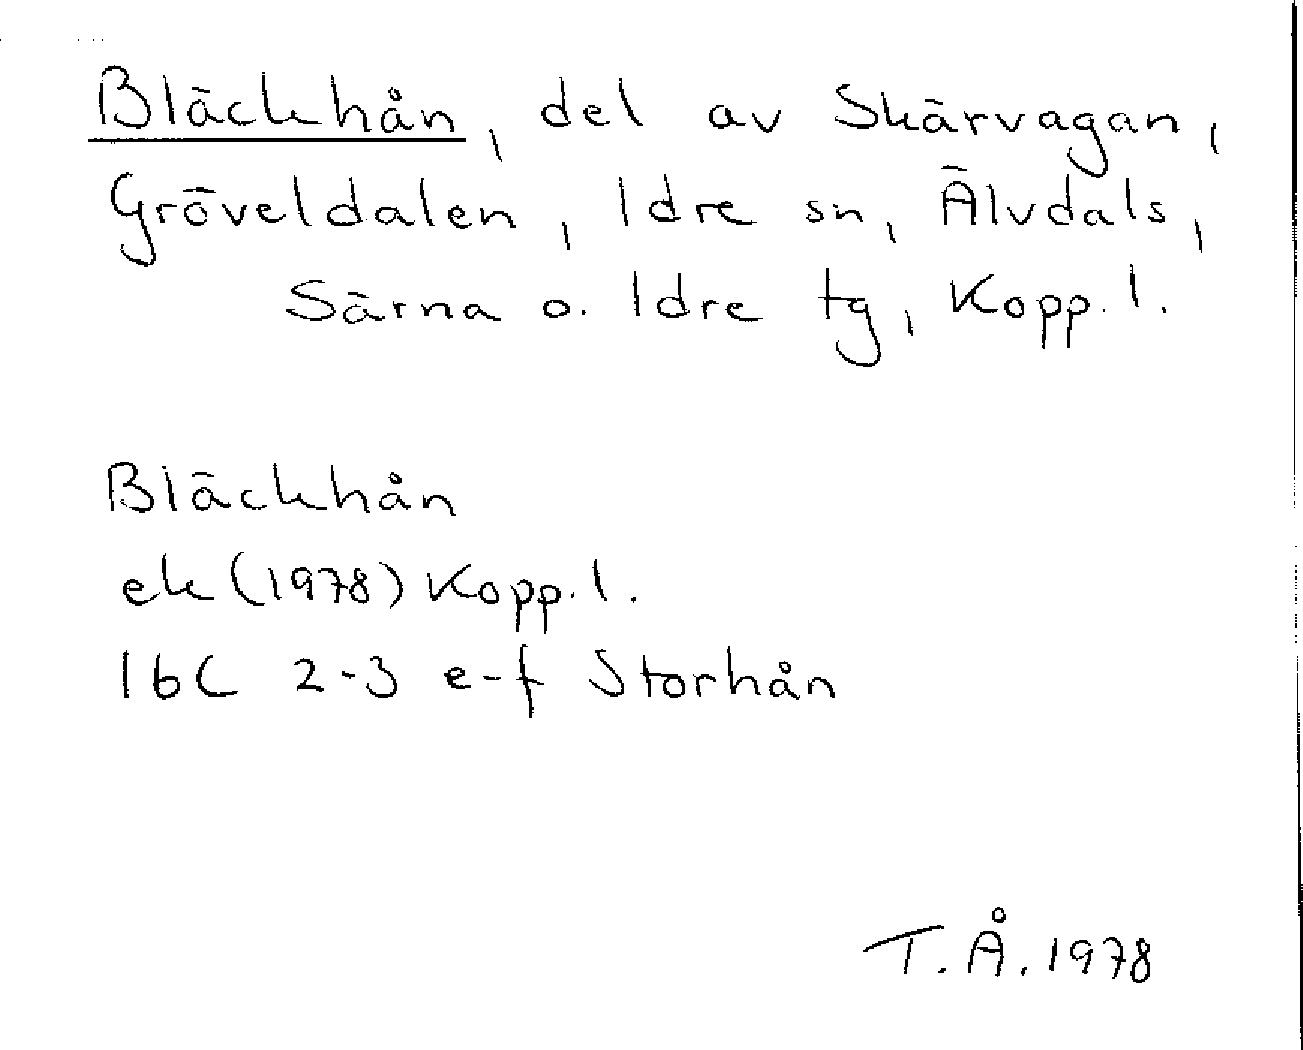 Bläckhån, del av Skärvagan,
Gröveldalen, Idre sn, Älvdals,
Särna o. Idre tg, Kopp. l.
Bläckhån
ek (1978) Kopp. l.
16C 2-3 e-f Storhån
T.Å. 1978